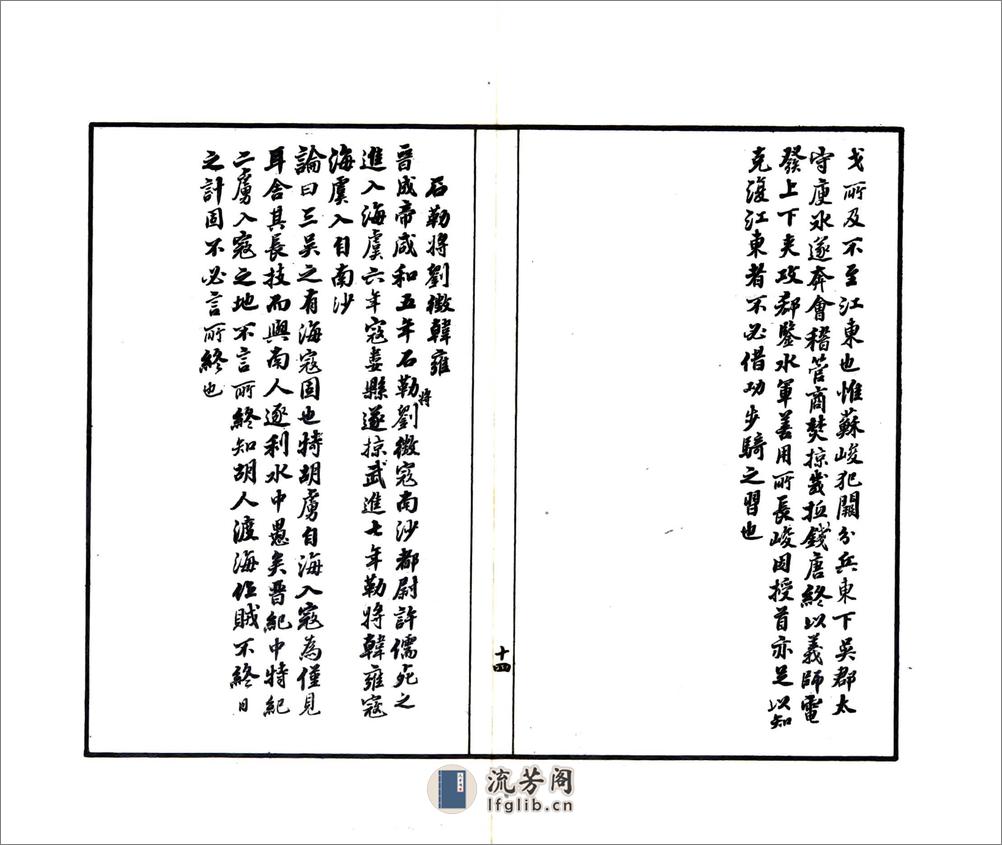 戈所及不至江東也惟蘇峻犯闕分兵東下吳郡太
守庾冰遂奔會稽管商焚掠幾抵錢唐終以義師電
發上下夾攻郗鑒水軍善用所長峻因授首亦足以知
克復江東者不必借功步騎之習也
十四
石勒將劉徵韓雍
晉成帝咸和五年石勒將劉徵寇南沙都尉許儒死之
進入海虞六年寇婁縣遂掠武進七年勒將韓雍寇
海虞入自南沙
論曰三吳之有海寇固也特胡虜自海入寇為僅見
耳舍其長技而與南人逐利水中愚矣晉紀中特紀
二虜入寇之地不言所終知胡人渡海作賊不終日
之計固不必言所終也
流芳阁
lfglib.cn